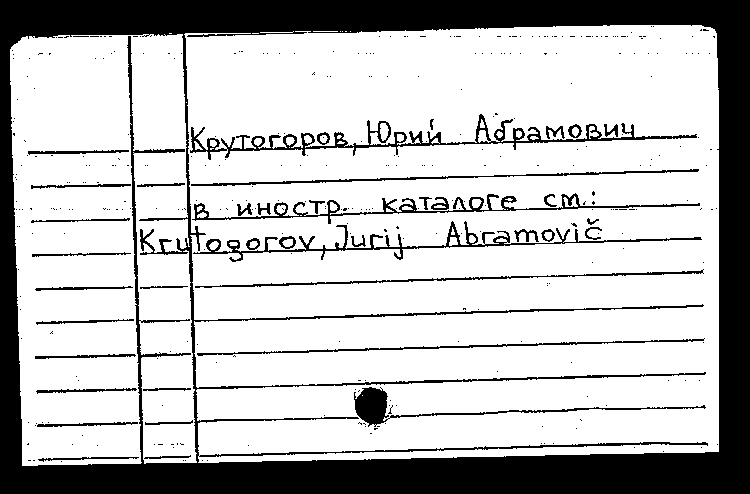 Крутогоров, Юрий Абрамович
в иностр. каталоге см.:
Krutogorov, Jurij Abramovič